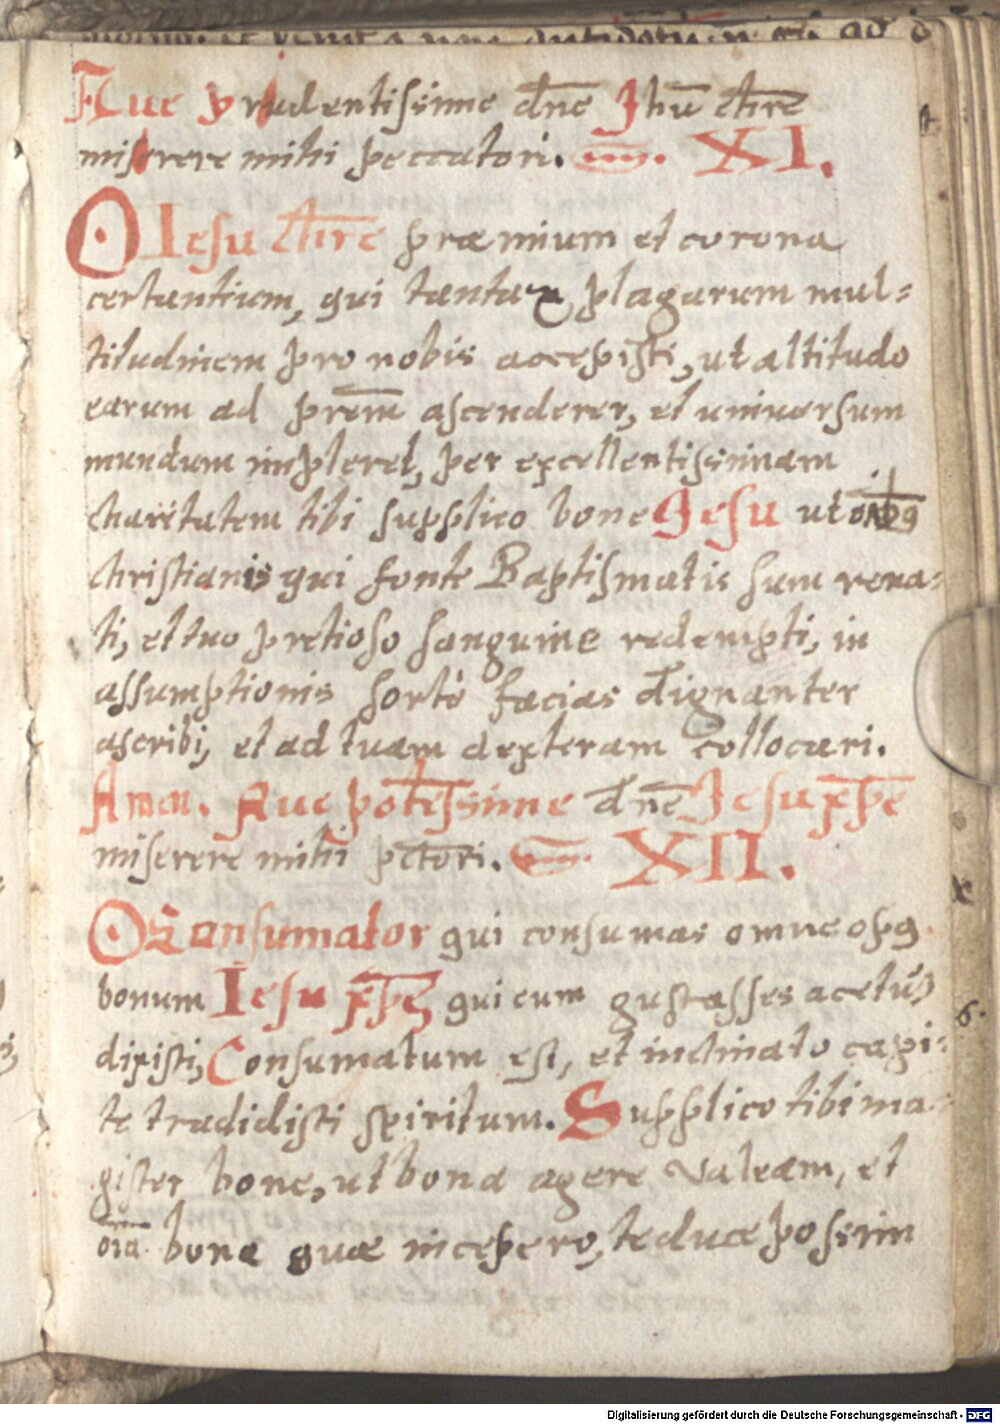 Aue prudentissime dn̄e Jhū chr̄e
miserere mihi peccatori. XI.
O Iesu chr̄e præmium et corona
certantium, qui tantam plagarum mul=
titudinem pro nobis accepisti, ut altitudo
earum ad prēm ascenderet, et universum
mundum impleret, per excellentissimam
charitatem tibi supplico bone Jesu ut oībꝯ
christianis qui fonte Baptismatis sum rena=
ti, et tuo pretioso sanguine redempti, in
assumptionis sorte facias dignanter
ascribi, et ad tuam dexteram collocari.
Amen. Aue potētissime dn̄e Jesu xp̄e
miserere mihi pctōri. XII.
O Consumator qui consumas omne opꝯ
bonum Iesu xp̄e qui cum gustasses acetū,
dixisti, Consumatum est, et inclinato capi=
te tradidisti spiritum. Supplico tibi ma=
gister bone, ut bona agere valeam, et
oīa bona quæ incepero, te duce possim
6.
Digitalisierung gefördert durch die Deutsche Forschungsgemeinschaft - DFG